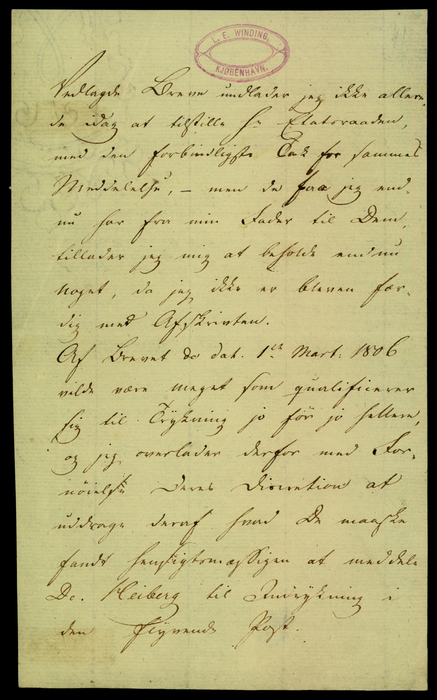 L. E. WINDING.
KJØBENHAVN.
Vedlagde Breve undlader jeg ikke allere-
de idag at tilstille Hr Etatsraaden,
med den forbindligste Tak for sammes
Meddelelse, – men de faa jeg end-
nu har fra min Fader til Dem,
tillader jeg mig at beholde endnu
noget, da jeg ikke er bleven fær-
dig med Afskriften.
Af Brevet dat. 1st Mart. 1806
vilde være meget som qualificerer
sig til Trykning jo før jo hellere,
og jeg overlader derfor med For-
nöielse Deres Discretion at
uddrage deraf hvad De maaske
fandt hensigtsmæssigen at meddele
Dr. Heiberg til Indrykning i
den flyvende Post.